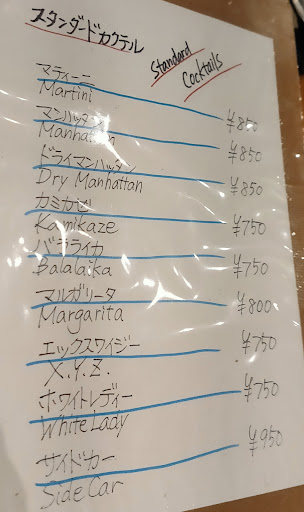 スタンダードカクテル
Standard
Cocktails
マティーニ
Martini ¥850
マンハッタン
Manhattan ¥850
ドライマンハッタン
Dry Manhattan ¥850
カミカゼ
Kamikaze ¥750
バラライカ
Balalaika ¥750
マルガリータ
Margarita ¥800
エックスワイジー
X.Y.Z. ¥750
ホワイトレディー
White Lady ¥750
サイドカー
Side Car ¥950